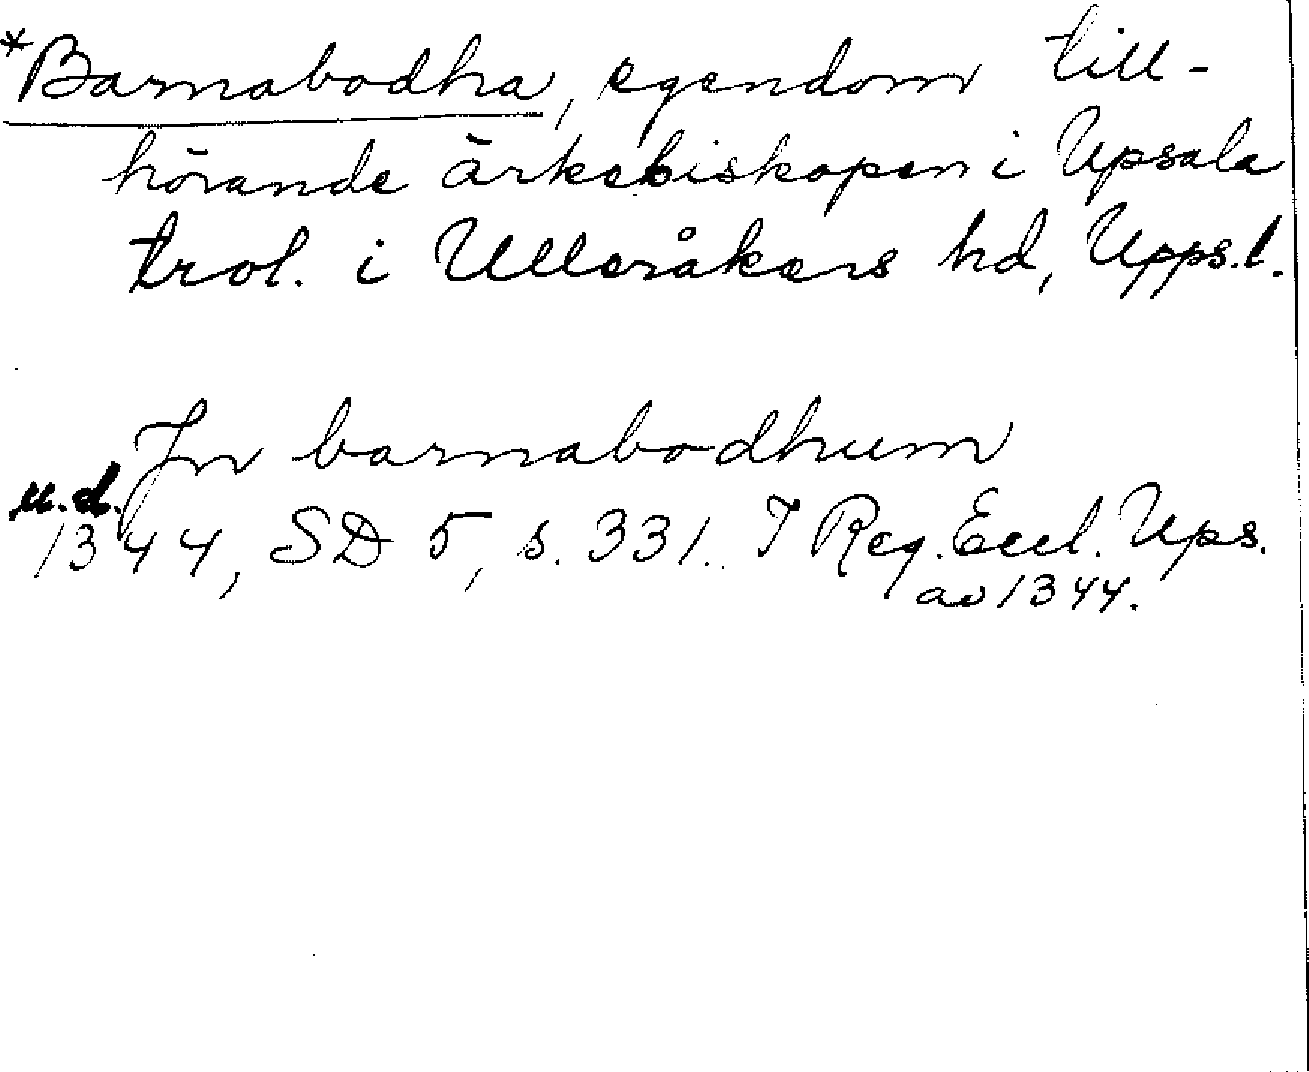 *Barnabodha, egendom till-
hörande ärkebiskopen i Upsala
trol. i Ulleråkers hd, Upps.l.
In barnabodhum
u.d.
1344, SD 5, s. 331. I Reg. Eccl. Ups.
av 1344.